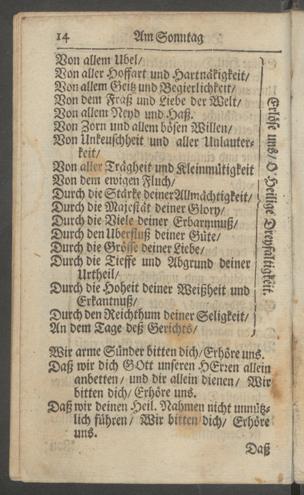 14 Am Sonntag
Von allem Ubel/
Von aller Hoffart und Hartnäkigkeit/
Von allem Geitz und Begierlichkeit/
Von dem Fraß und Liebe der Welt/
Von allem Neyd und Haß.
Von Zorn und allem bösen Willen/
Von Unkeuschheit und aller Unlauter-
keit/
Von aller Trägheit und Kleinmütigkeit
Von dem ewigen Fluch/
Durch die Stärke deiner Allmächtigkeit/
Durch die Majestät deiner Glory/
Durch die Viele deiner Erbarmnuß/
Durch den Uberfluß deiner Güte/
Durch die Grösse deiner Liebe/
Durch die Tieffe und Abgrund deiner
Urtheil/
Durch die Hoheit deiner Weißheit und
Erkantnuß/
Durch den Reichthum deiner Seligkeit/
An dem Tage deß Gerichts/
Erlöse uns/ O Heilige Dreyfaltigkeit.
Wir arme Sünder bitten dich/ Erhöre uns.
Daß wir dich GOtt unseren HErren allein
anbetten/ und dir allein dienen/ Wir
bitten dich/ Erhöre uns.
Daß wir deinen Heil. Nahmen nicht unnütz-
lich führen/ Wir bitten dich/ Erhöre
uns.
Daß